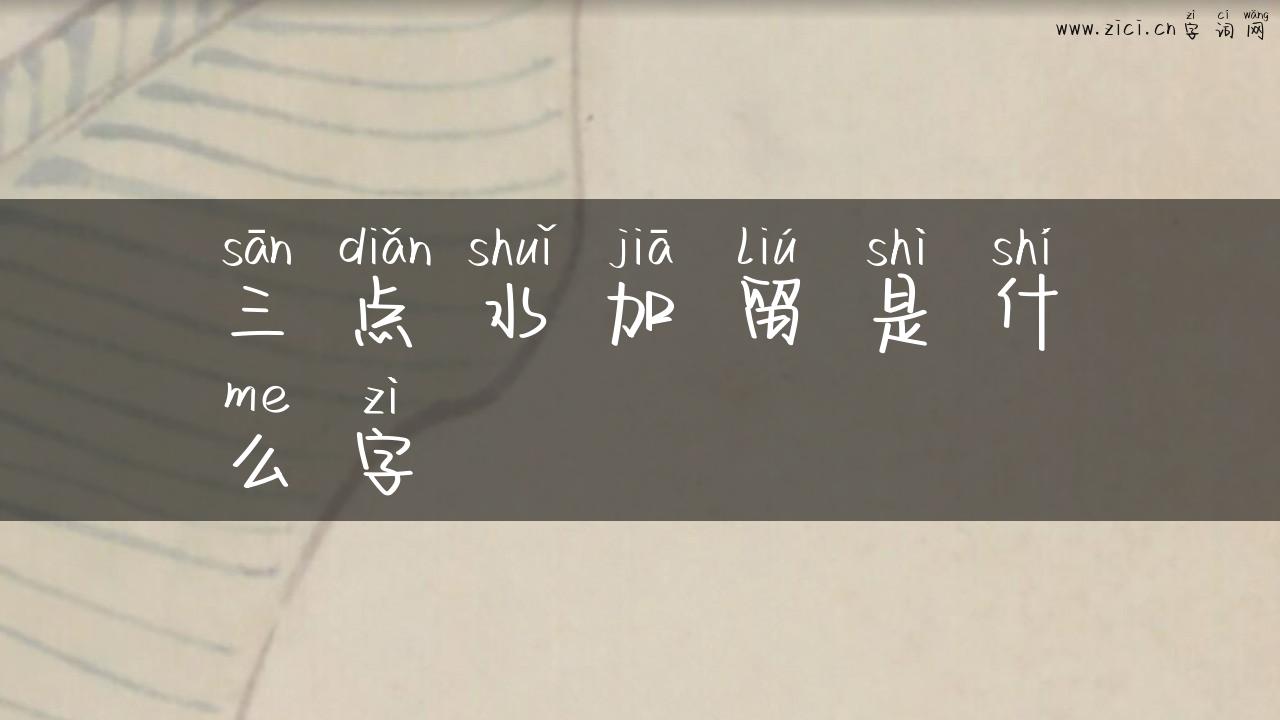 zì cí wǎng
www.zici.cn 字词网
sān diǎn shuǐ jiā liú shì shí
三点水加留是什
me zì
么字